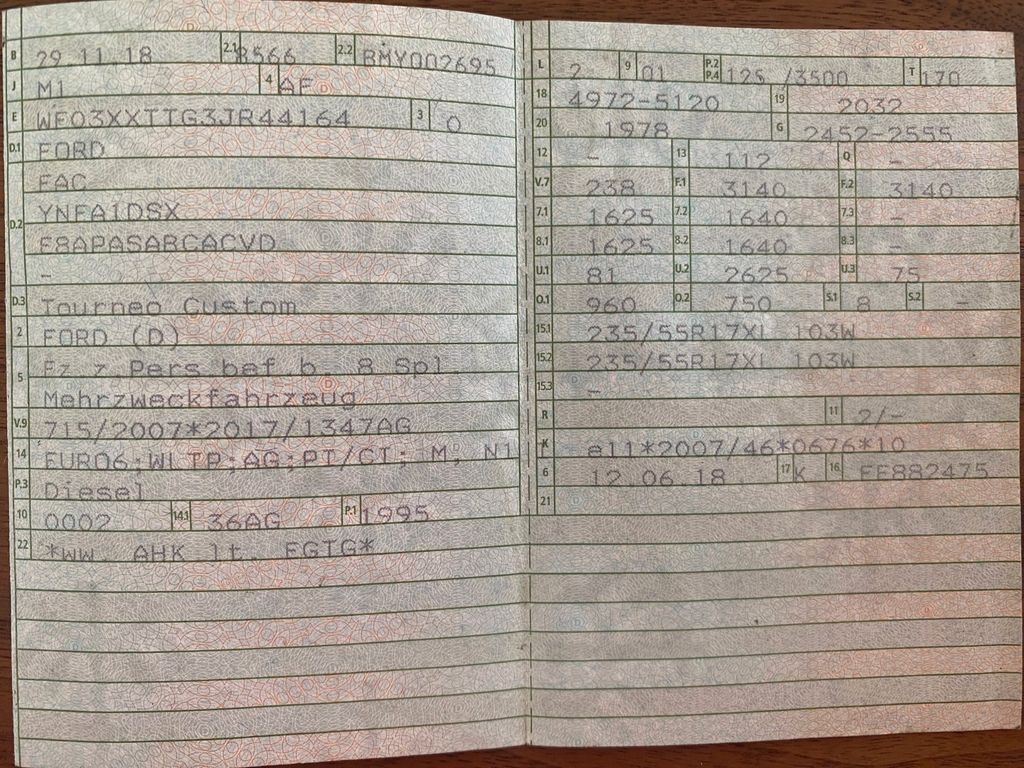 B 29.11.18 2.1 8566 2.2 BMY002695
J M1 4 AF
E WF03XXTTG3JR44164 3 0
D.1 FORD
FAC
D.2 YNFA1DSX
E8APASABCACVD
-
D.3 Tourneo Custom
2 FORD (D)
5 Fz.z.Pers.bef.b. 8 Spl.
Mehrzweckfahrzeug
V.9 715/2007*2017/1347AG
14 EURO6;WLTP;AG;PI/CI; M, N1
P.3 Diesel
10 0002 14.1 36AG P.1 1995
22 *ww. AHK lt. EGTG*
L 2 9 01 P.2 P.4 125 /3500 T 170
18 4972-5120 19 2032
20 1978 G 2452-2555
12 - 13 112 Q -
V.7 238 F.1 3140 F.2 3140
7.1 1625 7.2 1640 7.3 -
8.1 1625 8.2 1640 8.3 -
U.1 81 U.2 2625 U.3 75
O.1 960 O.2 750 S.1 8 S.2 -
15.1 235/55R17XL 103W
15.2 235/55R17XL 103W
15.3 -
R 11 2/-
K e11*2007/46*0676*10
6 12.06.18 17 K 16 FE882475
21